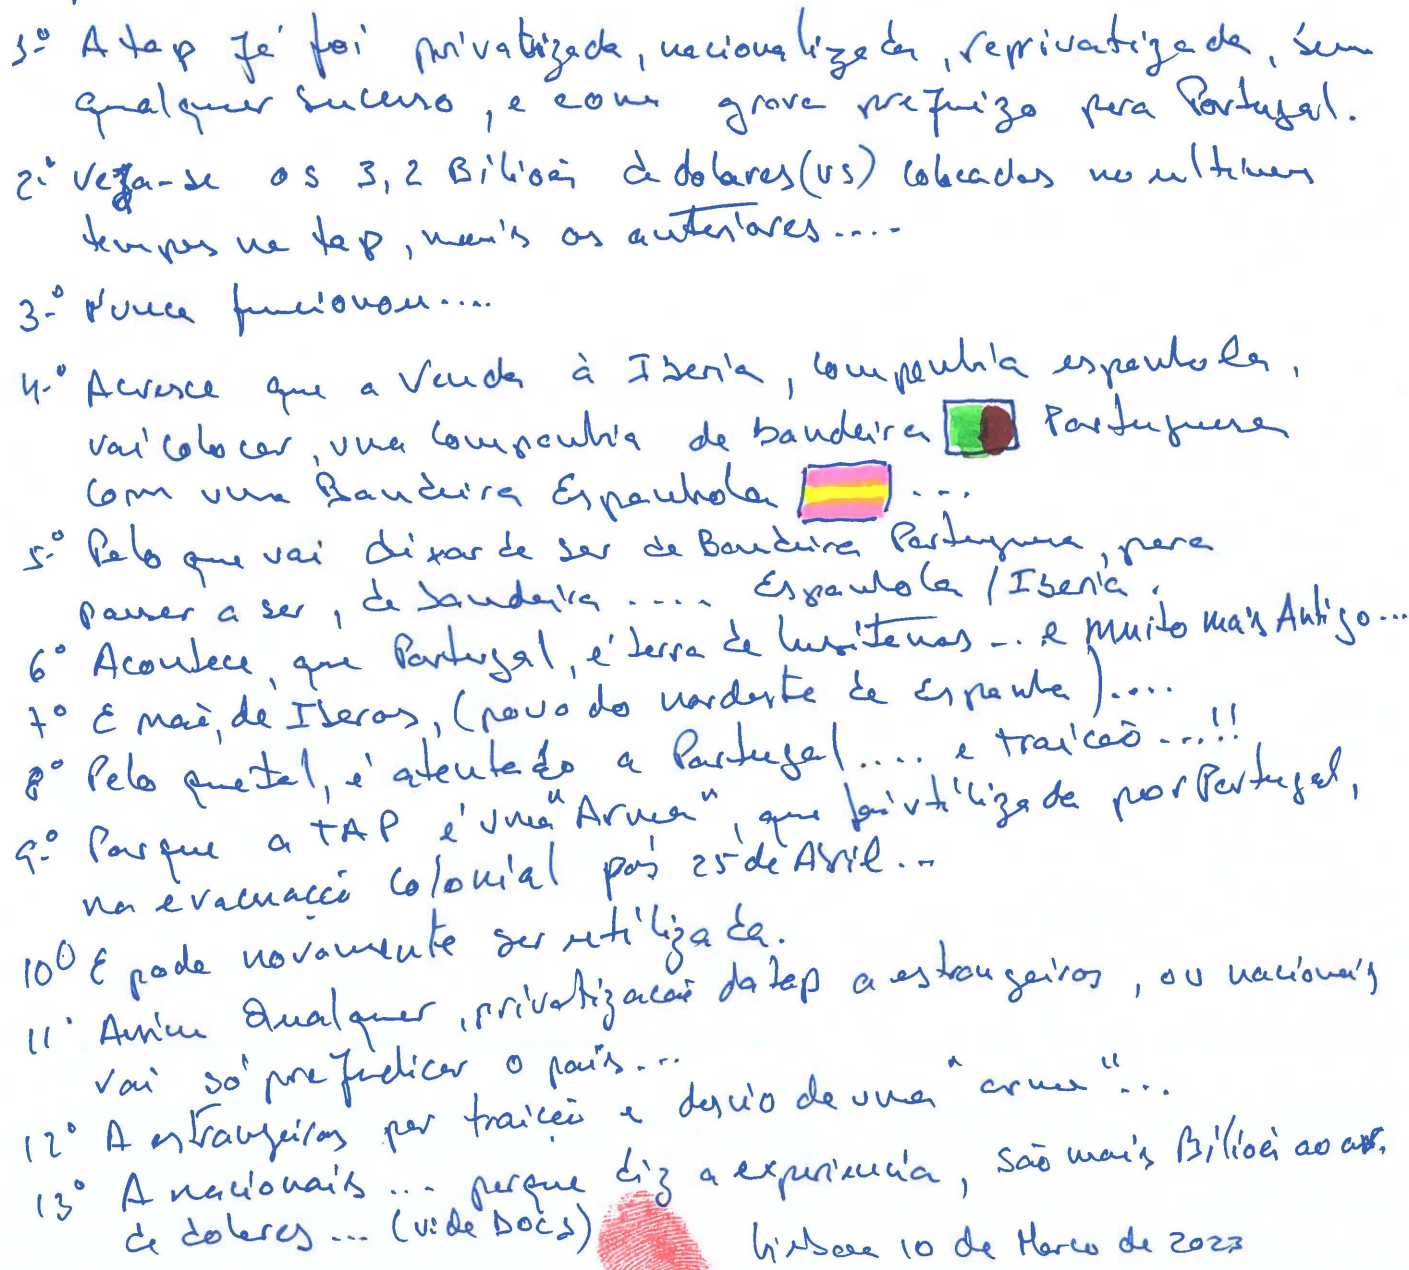 1.º A tap Já foi privatizada, nacionalizada, reprivatizada, sem
qualquer sucesso, e com grave prejuizo para Portugal.
2.º Veja-se os 3,2 Biliões de dolares (US) colocados no ultimos
tempos na tap, mais os anteriores....
3.º Nunca funcionou....
4.º Acresce que a Venda à Iberia, companhia espanhola,
vai colocar, uma Companhia de bandeira Portuguesa
com uma Bandeira Espanhola ...
5.º Pelo que vai dixar de ser de Bandeira Portuguesa, para
passar a ser, de bandeira .... Espanhola / Iberia.
6º Acontece, que Portugal, é terra de lusitanos ... e muito mais Antigo...
7º E mais, de Iberos, (povo do nordeste de Espanha)....
8º Pelo que tal, é atentado a Portugal.... e traição...!!
9.º Porque a TAP é uma "Arma", que foi utilizada por Portugal,
na evacuação colonial pós 25 de Abril...
10º E pode novamente ser utilizada.
11º Assim Qualquer, privatização da tap a estrangeiros, ou nacionais
vai só prejudicar o país...
12º A estrangeiros por traição e desvio de uma "arma"...
13º A nacionais ... porque diz a experiencia, são mais Biliões ao ar.
de dolares... (vide DOCS)
Lisboa 10 de Março de 2023